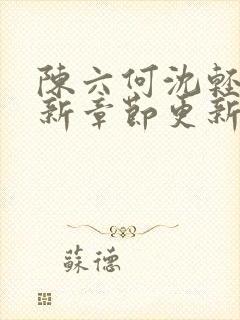 陳六何沈輕
新章節更新
蘇德